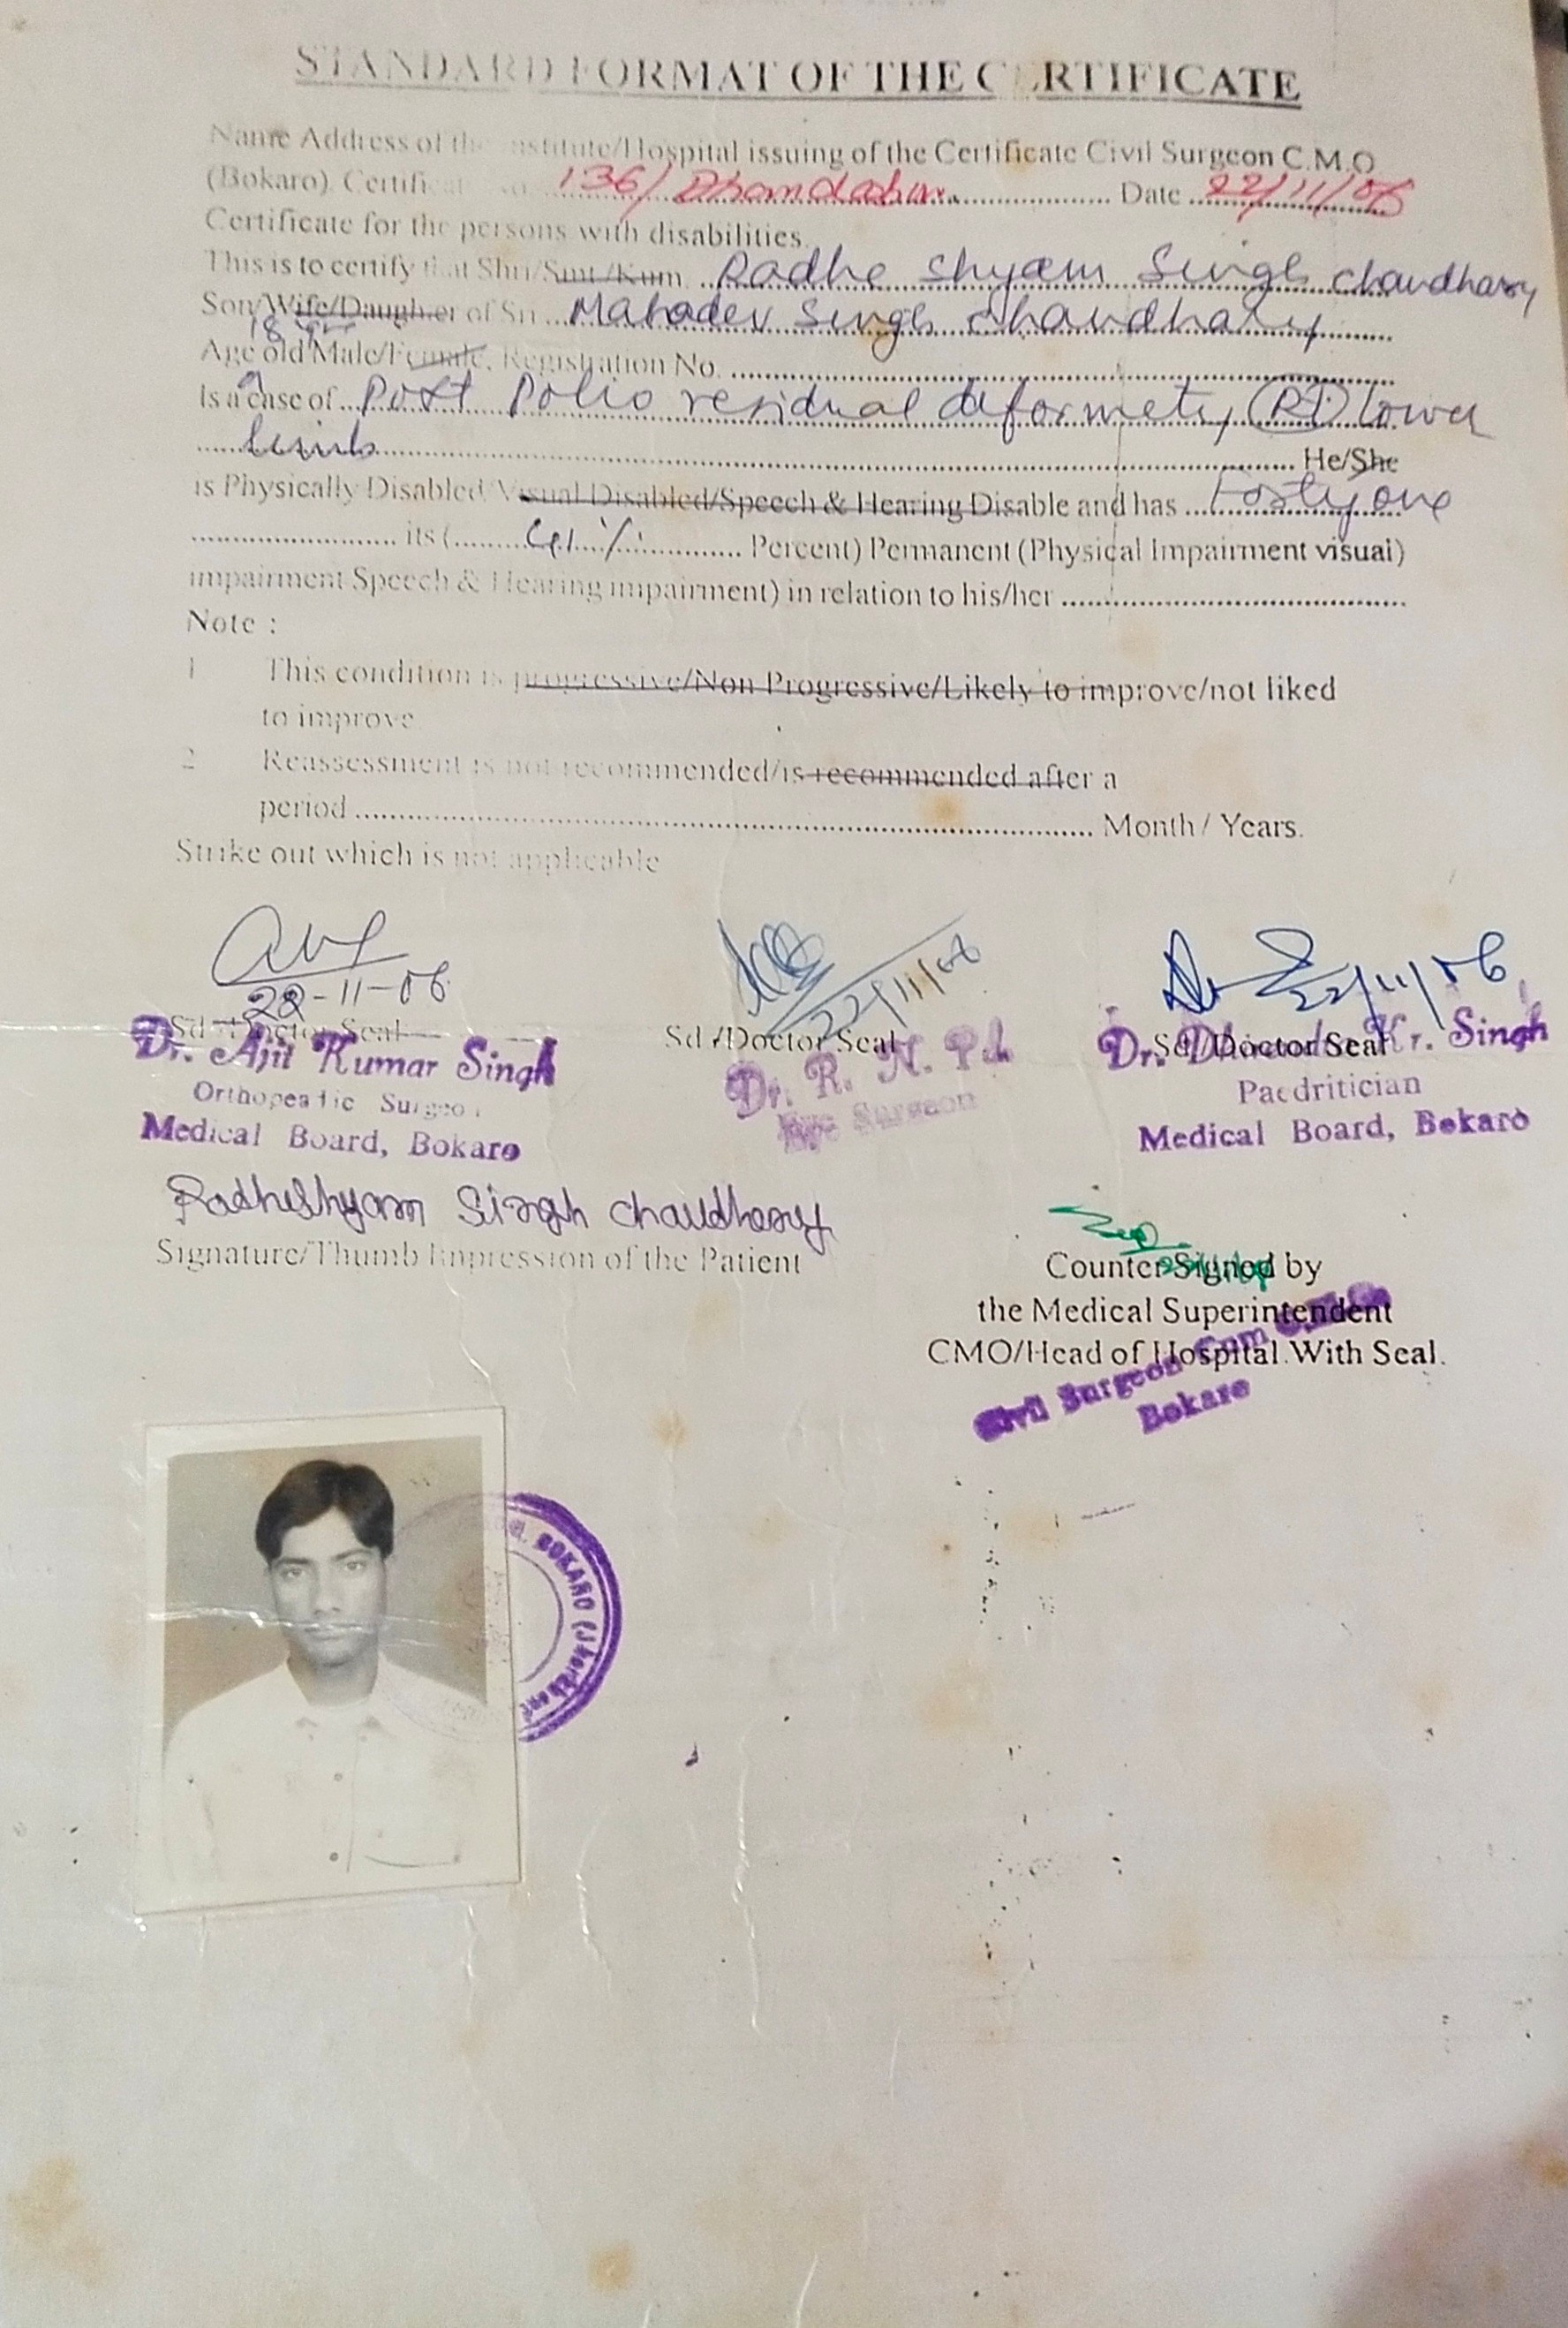 STANDARD FORMAT OF THE CERTIFICATE
Name Address of the Institute/Hospital issuing of the Certificate Civil Surgeon C.M.O
(Bokaro). Certificate No. 136/ Date 22/11/06
Certificate for the persons with disabilities.
This is to certify that Shri/Smt./Kum. Radhe Shyam Singh Chaudhary
Son/Wife/Daugher of Sri Mahadev Singh Chaudhary
18 yrs
Age old Male/Female, Registration No.
Is a case of Post Polio residual deformety (Rt) lower
limb He/She
is Physically Disabled/Visual Disabled/Speech & Hearing Disable and has Forty one
its ( 41 % Percent) Permanent (Physical Impairment visual)
impairment Speech & Hearing impairment) in relation to his/her
Note :
1 This condition is progressive/Non Progressive/Likely to improve/not liked
to improve.
2 Reassessment is not recommended/is recommended after a
period Month / Years.
Strike out which is not applicable
22-11-06 22/11/06 22/11/06
Sd/Doctor Seal Sd/Doctor Seal Sd/Doctor Seal
Dr. Ajit Kumar Singh Dr. R. N. Kr. Singh
Orthopeadic Surgeon Eye Surgeon Paedritician
Medical Board, Bokaro Medical Board, Bokaro
Radheshyam Singh Chaudhary
Signature/Thumb Impression of the Patient
Counter Signed by
the Medical Superintendent
CMO/Head of Hospital With Seal.
Civil Surgeon Cum C.M.O.
Bokaro
BOKARO (Jharkhand